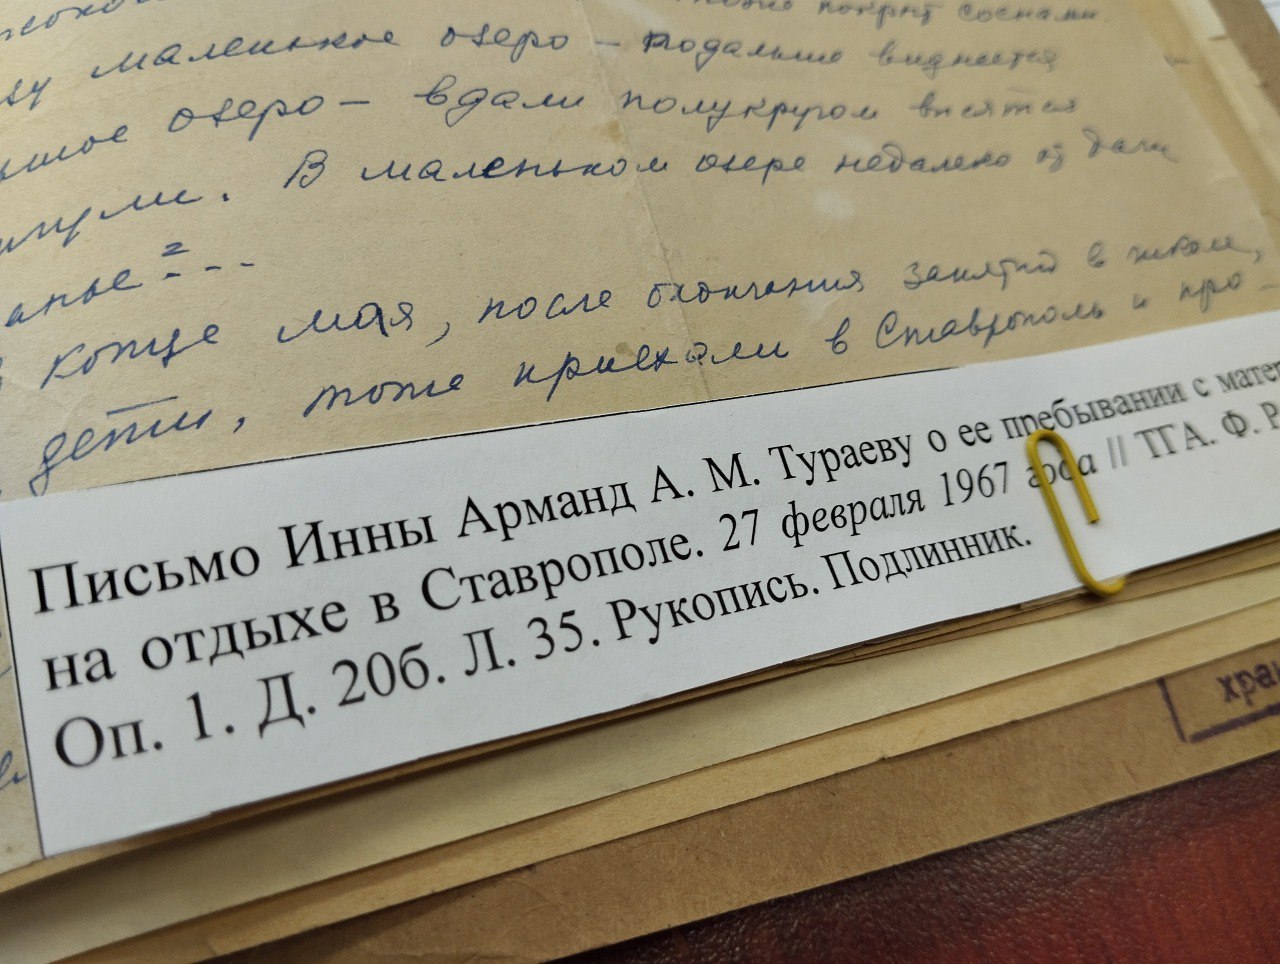 покрыт соснами.
маленькое озеро – подальше виднеется
озеро – вдали полукругом высятся
В маленьком озере недалеко от дачи
2
конце мая, после окончания занятий в школе,
дети, тоже приехали в Ставрополь и про-
Письмо Инны Арманд А. М. Тураеву о ее пребывании с матер
на отдыхе в Ставрополе. 27 февраля 1967 года // ТГА. Ф. Р
Оп. 1. Д. 206. Л. 35. Рукопись. Подлинник.
хран